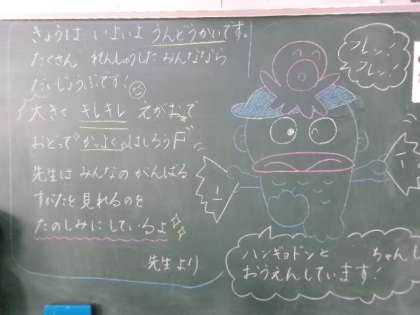 きょうは いよいよ うんどうかいです。
たくさん れんしゅうした みんななら
だいじょうぶです!
大きく キレキレ えがおで
おどって かっこよく はしろう
先生は みんなの がんばる
すがたを 見れるのを
たのしみに しているよ
先生より
フレッ!
フレッ!
ハンギョドンと ちゃんも
おうえんしています!